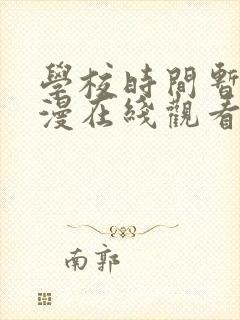 學校時間暫
漫在綫觀看
南郭